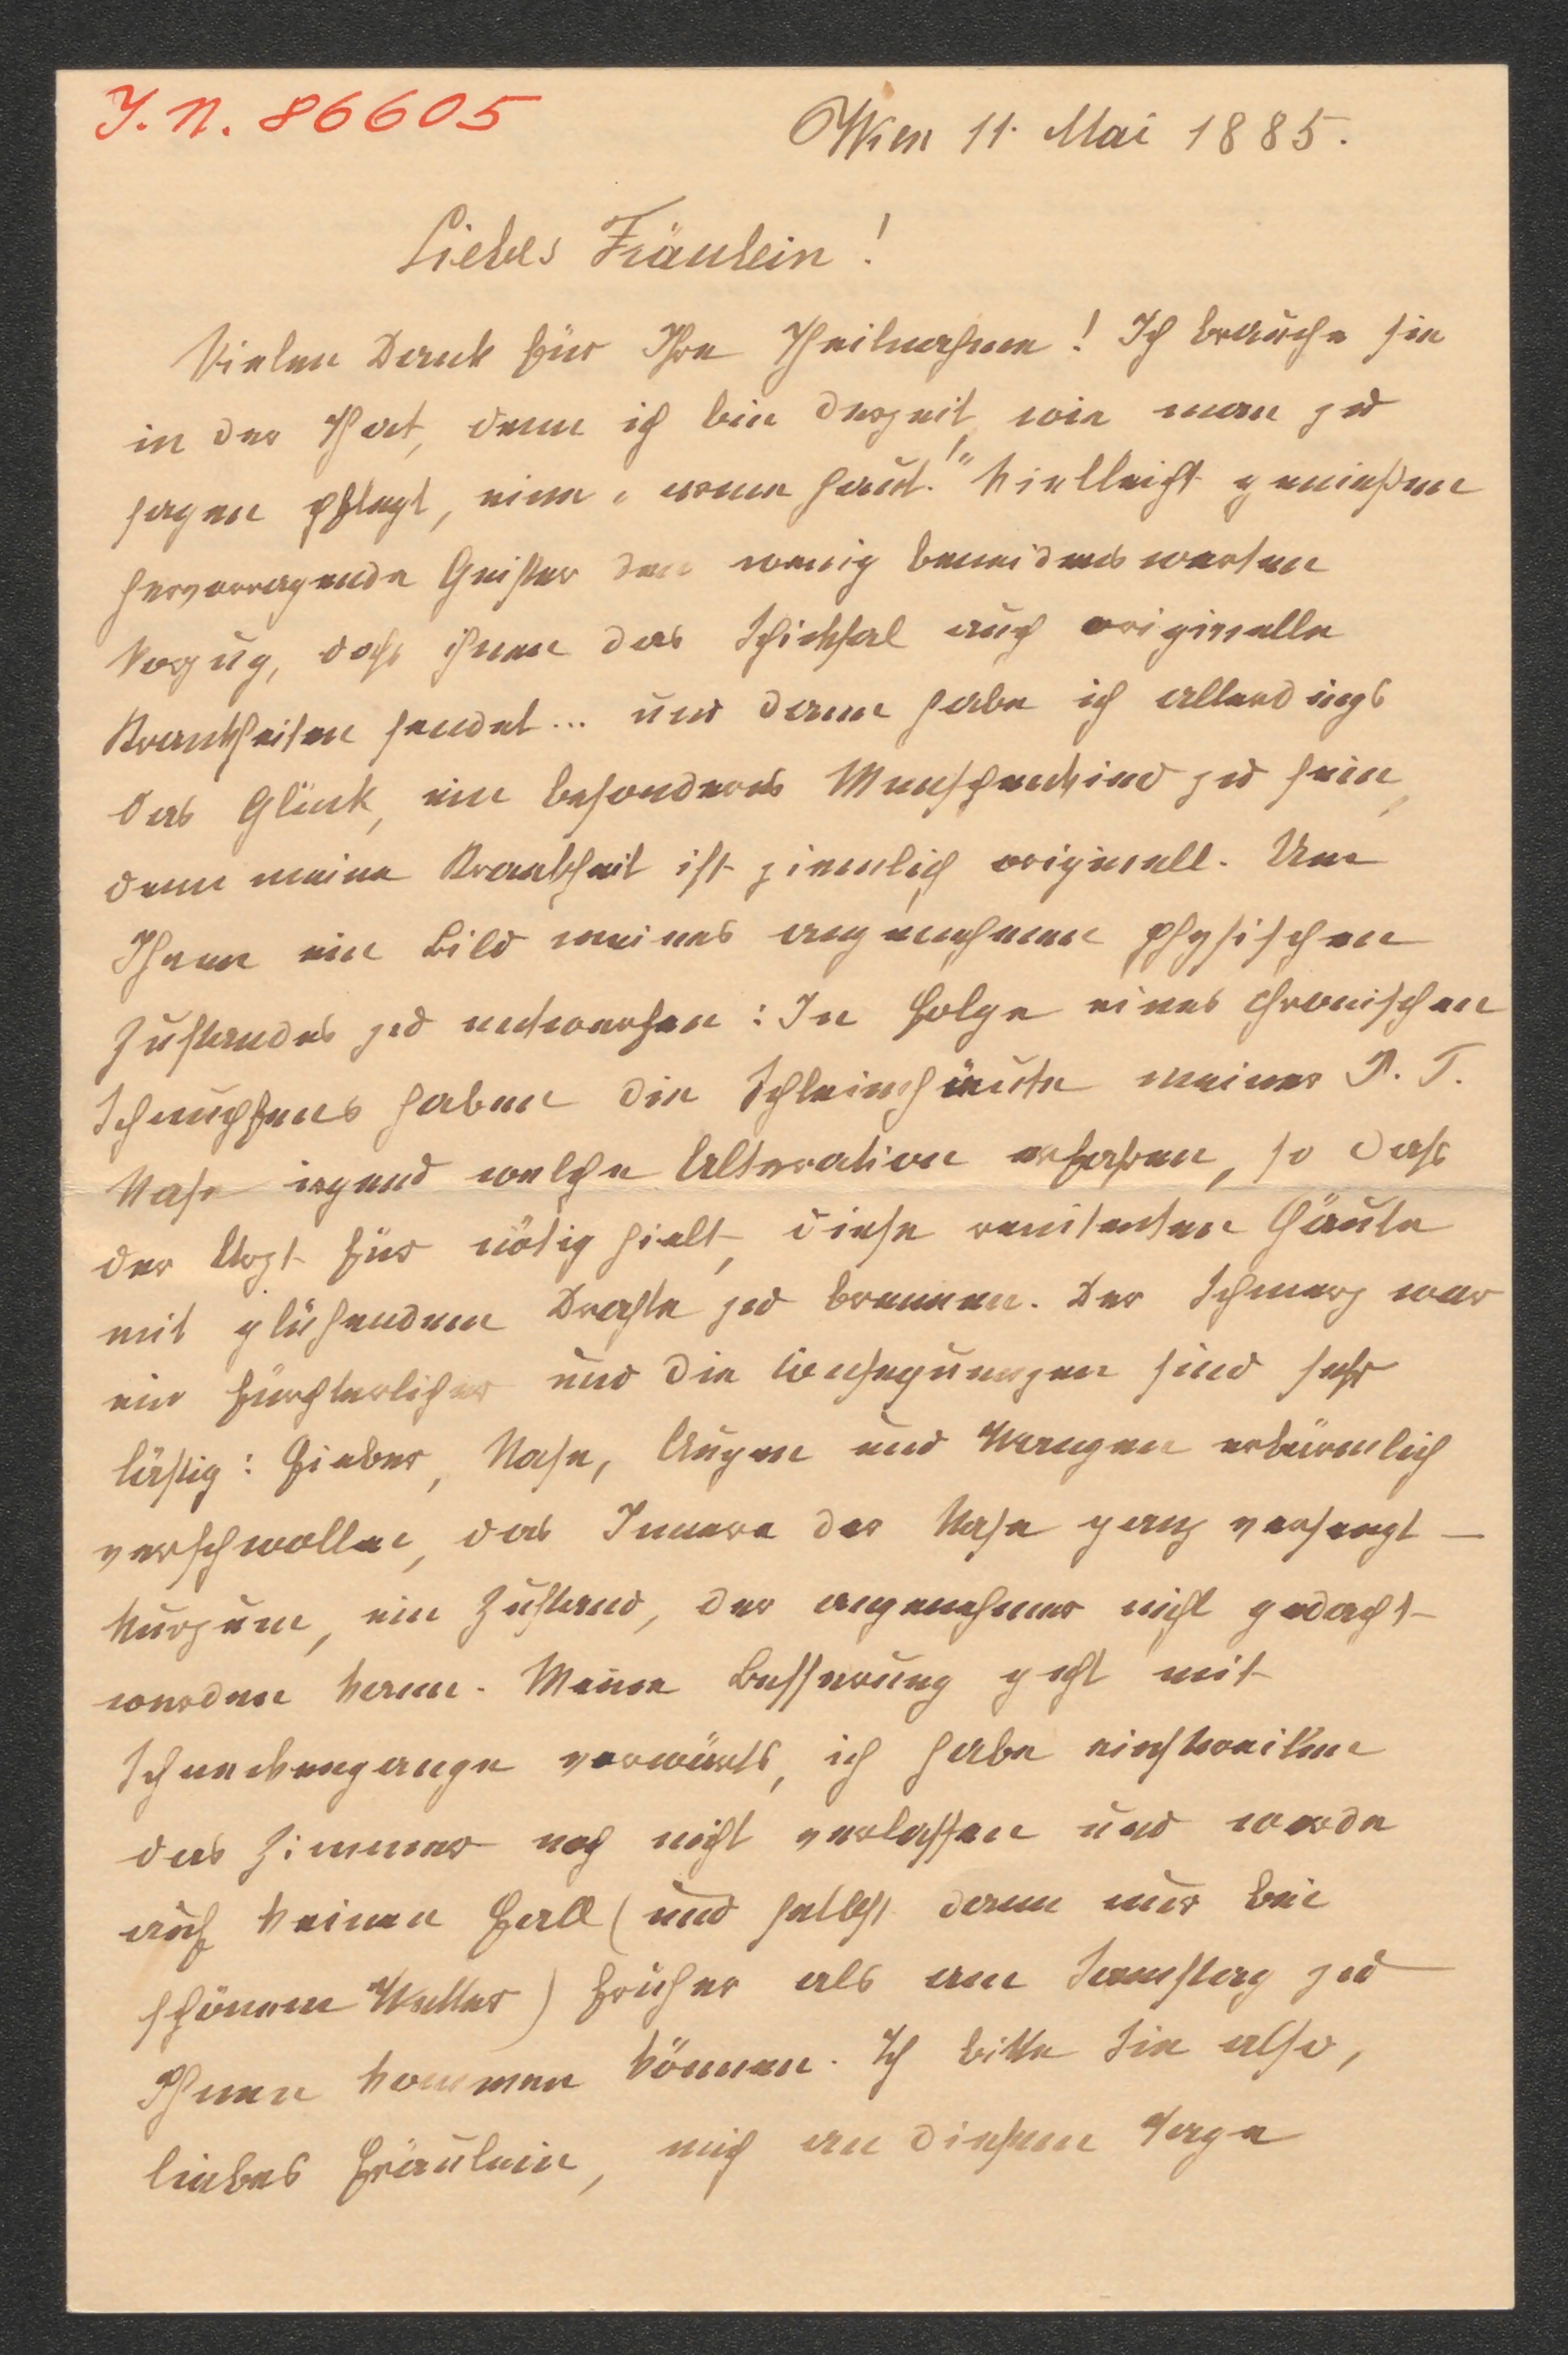 J. N. 86605
Wien 11. Mai 1885.
Liebes Fräulein!
Vielen Dank für Ihre Theilnahme! Ich brauche sie
in der That, denn ich bin derzeit, wie man zu
sagen pflegt, eine „arme Haut!" Vielleicht genießen
hervorragende Geister den wenig beneidenswerten
Vorzug, daß ihnen das Schicksal auch originelle
Krankheiten sendet... und dann habe ich allerdings
das Glück, ein besonderes Menschenkind zu sein,
denn meine Krankheit ist ziemlich originell. Um
Ihnen ein Bild meines angenehmen physischen
Zustandes zu entwerfen: In Folge eines chronischen
Schnupfens haben die Schleimhäute meiner P. T.
Nase irgend welche Alteration erfahren, so daß
der Arzt für nötig hielt, diese renitenten Häute
mit glühendem Drahte zu brennen. Der Schmerz war
ein fürchterlicher und die Consequenzen sind sehr
lästig: Fieber, Nase, Augen und Wangen erbärmlich
verschwollen, das Innere der Nase ganz versengt —
kurzum, ein Zustand, der angenehmer nicht gedacht
werden kann. Meine Besserung geht mit
Schneckengange vorwärts, ich habe einstweilen
das Zimmer noch nicht verlassen und werde
auf keinen Fall (und selbst dann nur bei
schönem Wetter) früher als am Samstag zu
Ihnen kommen können. Ich bitte Sie also,
liebes Fräulein, mich an diesem Tage